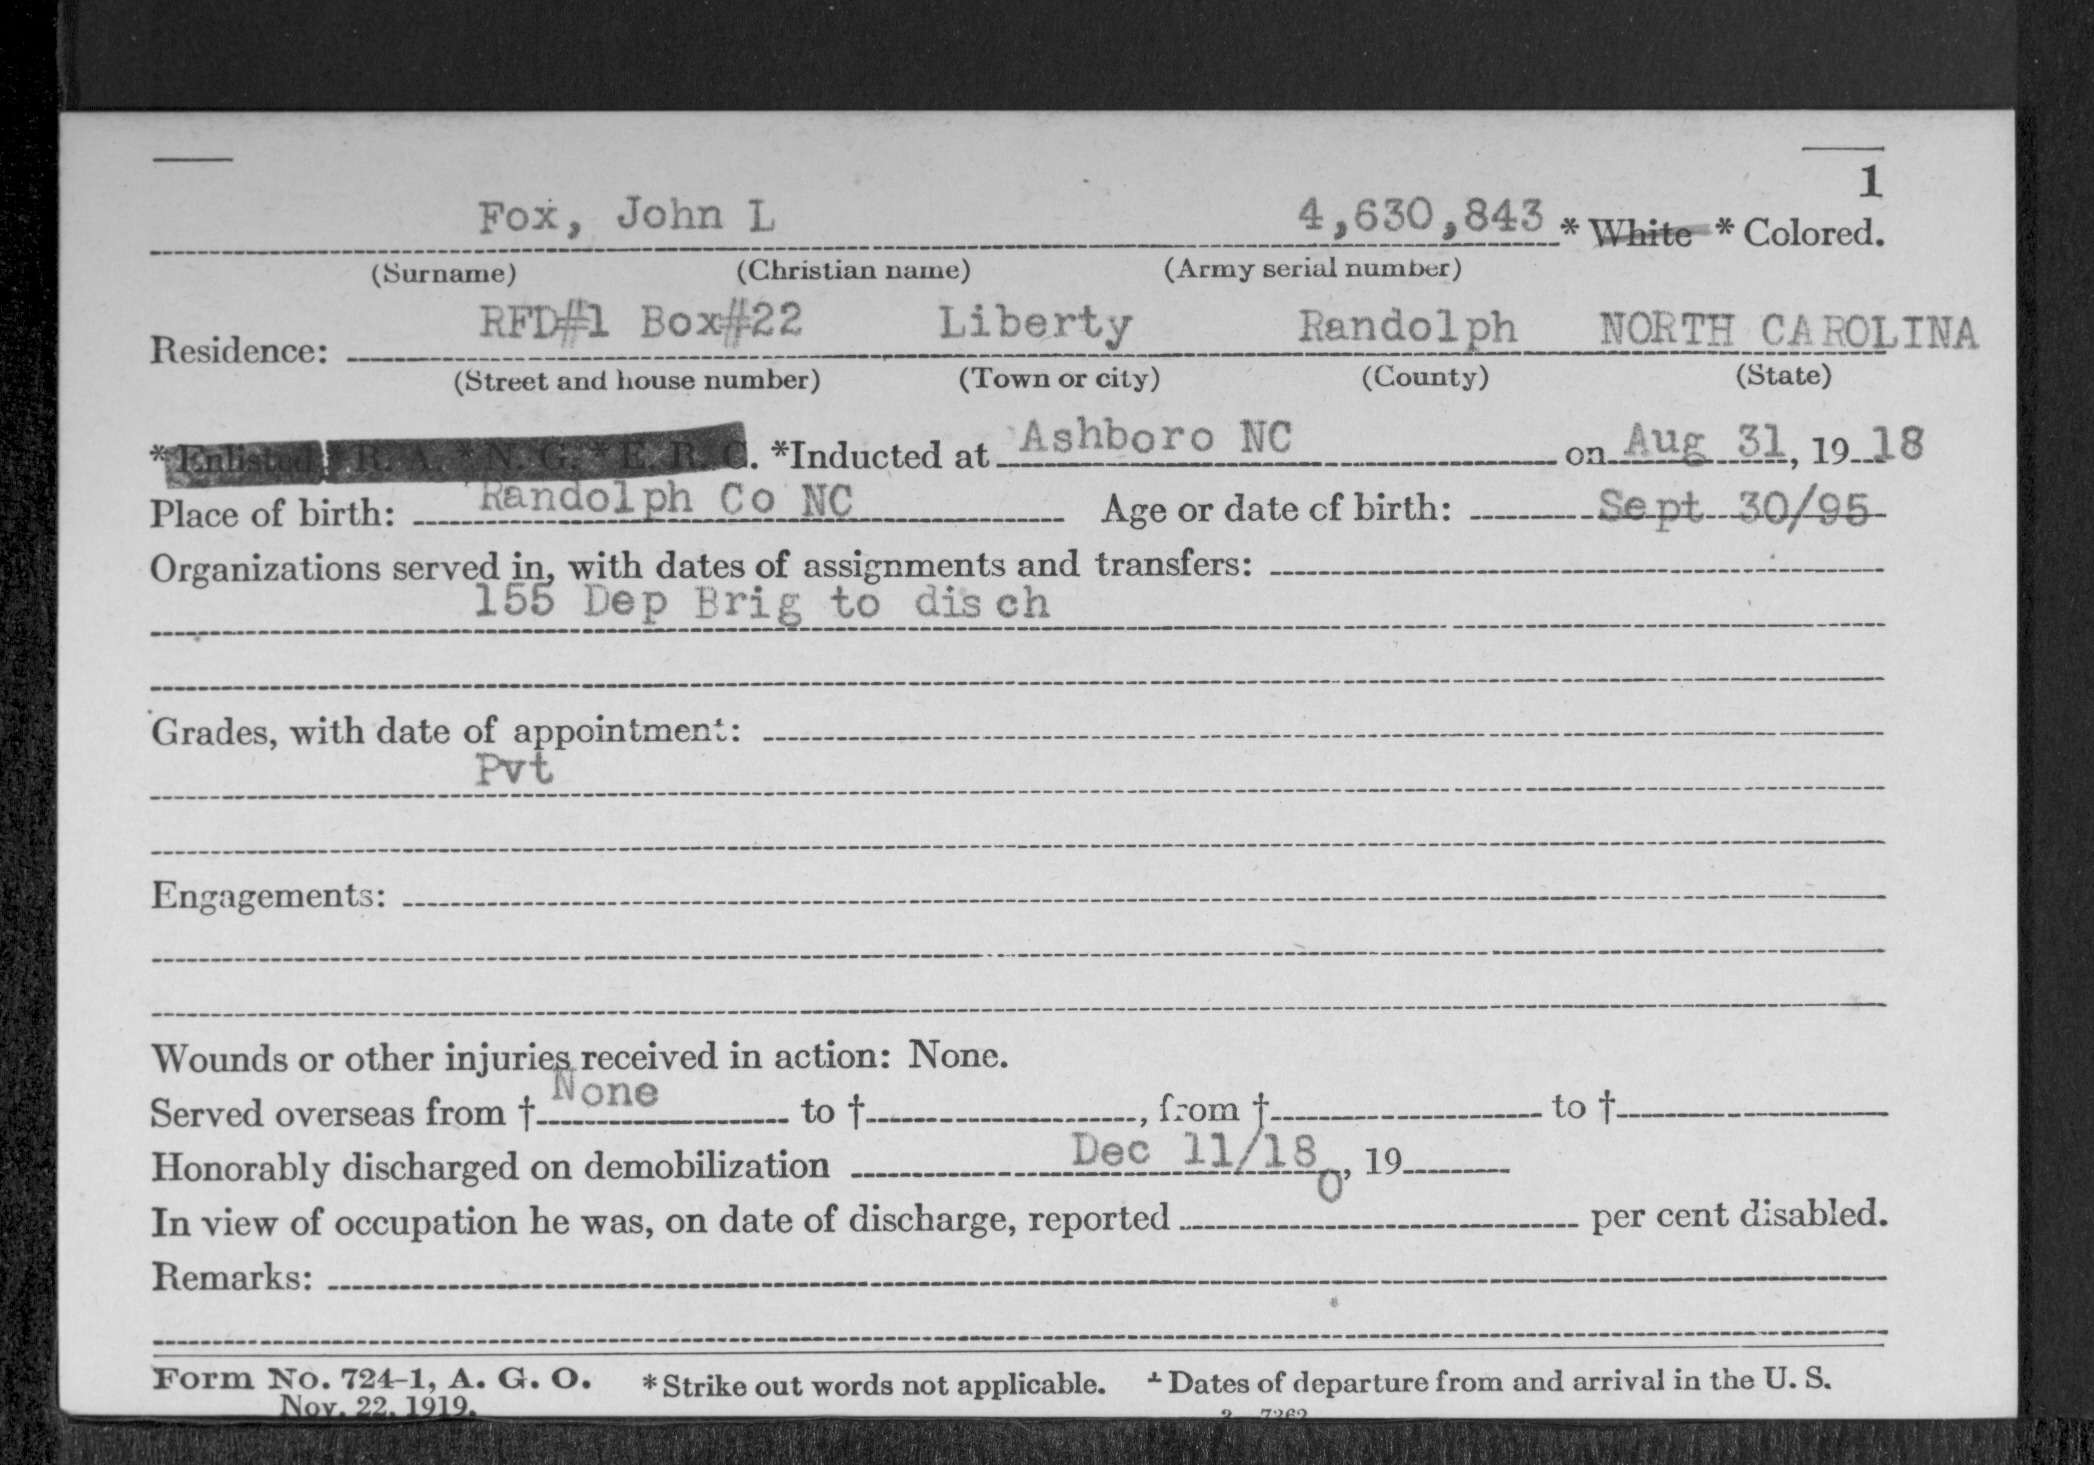 1
Fox, John L 4,630,843 * White * Colored.
(Surname) (Christian name) (Army serial number)
Residence: RFD#1 Box#22 Liberty Randolph NORTH CAROLINA
(Street and house number) (Town or city) (County) (State)
* Enlisted * R. A. * N. G. * E. R. C. *Inducted at Ashboro NC on Aug 31, 19 18
Place of birth: Randolph Co NC Age or date of birth: Sept 30/95
Organizations served in, with dates of assignments and transfers:
155 Dep Brig to disch
Grades, with date of appointment:
Pvt
Engagements:
Wounds or other injuries received in action: None.
Served overseas from † None to †, from † to †
Honorably discharged on demobilization Dec 11/18, 19
0
In view of occupation he was, on date of discharge, reported per cent disabled.
Remarks:
Form No. 724-1, A. G. O. * Strike out words not applicable. † Dates of departure from and arrival in the U. S.
Nov. 22, 1919.